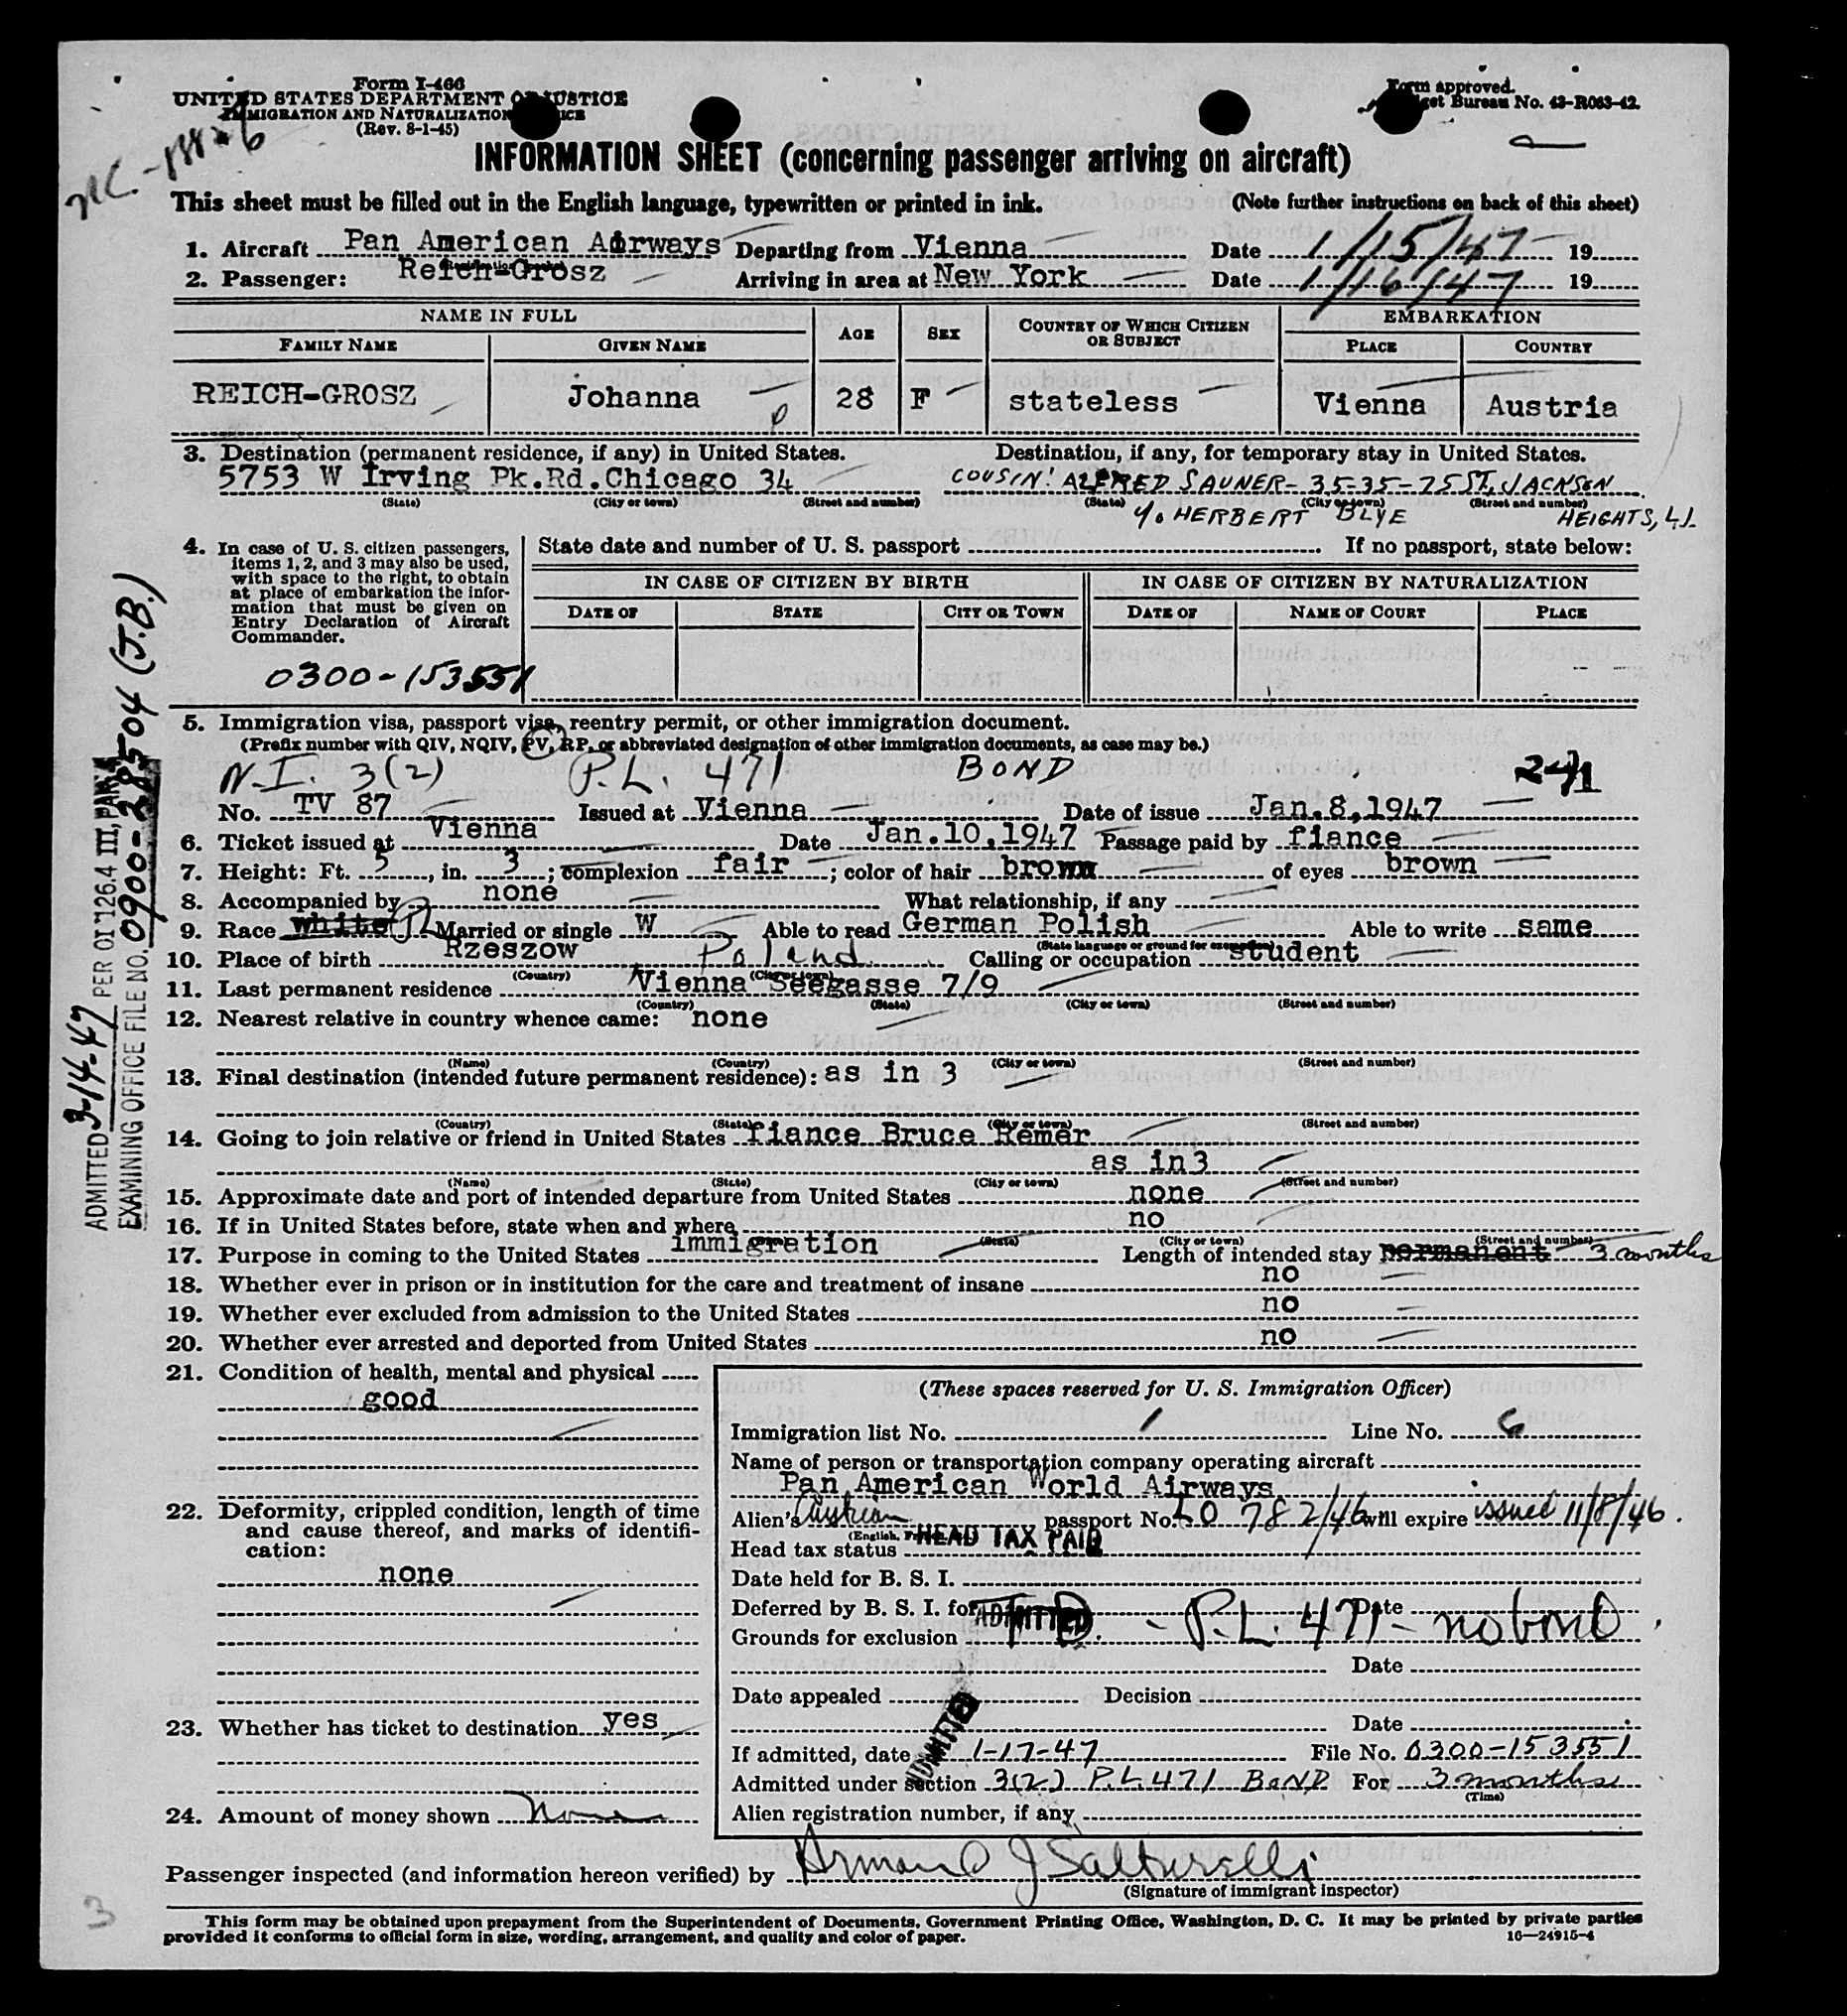 Form I-466
UNITED STATES DEPARTMENT OF JUSTICE
IMMIGRATION AND NATURALIZATION SERVICE
(Rev. 8-1-45)
Form approved.
Budget Bureau No. 43-R063-42.
INFORMATION SHEET (concerning passenger arriving on aircraft)
This sheet must be filled out in the English language, typewritten or printed in ink. (Note further instructions on back of this sheet)
1. Aircraft Pan American Airways Departing from Vienna Date 1/15/47 19
2. Passenger: Reich-Grosz Arriving in area at New York Date 1/16/47 19
NAME IN FULL AGE SEX COUNTRY OF WHICH CITIZEN OR SUBJECT EMBARKATION
FAMILY NAME GIVEN NAME PLACE COUNTRY
REICH-GROSZ Johanna 28 F stateless Vienna Austria
3. Destination (permanent residence, if any) in United States. Destination, if any, for temporary stay in United States.
5753 W Irving Pk.Rd.Chicago 34 COUSIN: ALFRED SAUNER- 35-35-75 ST, JACKSON
(State) (City or town) (Street and number) (State) (City or town) (Street and number)
c/o HERBERT BLYE HEIGHTS, L.I.
4. In case of U. S. citizen passengers, items 1, 2, and 3 may also be used, with space to the right, to obtain at place of embarkation the information that must be given on Entry Declaration of Aircraft Commander.
State date and number of U. S. passport If no passport, state below:
IN CASE OF CITIZEN BY BIRTH IN CASE OF CITIZEN BY NATURALIZATION
DATE OF STATE CITY OR TOWN DATE OF NAME OF COURT PLACE
0300-153551
5. Immigration visa, passport visa, reentry permit, or other immigration document.
(Prefix number with QIV, NQIV, PV, RP, or abbreviated designation of other immigration documents, as case may be.)
N.I. 3(2) P.L. 471 BOND
No. TV 87 Issued at Vienna Date of issue Jan.8,1947
6. Ticket issued at Vienna Date Jan.10,1947 Passage paid by fiance
7. Height: Ft. 5, in. 3; complexion fair; color of hair brown of eyes brown
8. Accompanied by none What relationship, if any
9. Race white Married or single W Able to read German Polish Able to write same
(State language or ground for exemption)
10. Place of birth Rzeszow Poland Calling or occupation student
(Country) (City or town)
11. Last permanent residence Vienna Seegasse 7/9
(Country) (State) (City or town) (Street and number)
12. Nearest relative in country whence came: none
(Name) (Country) (City or town) (Street and number)
13. Final destination (intended future permanent residence): as in 3
(Country) (State) (City or town) (Street and number)
14. Going to join relative or friend in United States fiance Bruce Remer
as in3
(Name) (State) (City or town) (Street and number)
15. Approximate date and port of intended departure from United States none
16. If in United States before, state when and where no
(State) (City or town) (Street and number)
17. Purpose in coming to the United States immigration Length of intended stay permanent 3 months
18. Whether ever in prison or in institution for the care and treatment of insane no
19. Whether ever excluded from admission to the United States no
20. Whether ever arrested and deported from United States no
21. Condition of health, mental and physical
good
22. Deformity, crippled condition, length of time and cause thereof, and marks of identification:
none
23. Whether has ticket to destination yes
24. Amount of money shown None
(These spaces reserved for U. S. Immigration Officer)
Immigration list No. 1 Line No. 6
Name of person or transportation company operating aircraft
Pan American World Airways
Alien's Austrian passport No. LO 782/46 will expire issued 11/8/46.
Head tax status HEAD TAX PAID
Date held for B. S. I.
Deferred by B. S. I. for Date
ADMITTED
Grounds for exclusion T.D. - P.L. 471 - no bond
Date
Date appealed Decision
Date
ADMITTED
If admitted, date 1-17-47 File No. 0300-153551
Admitted under section 3(2) P.L. 471 BOND For 3 months
(Time)
Alien registration number, if any
Passenger inspected (and information hereon verified) by Armand J Salturelli
(Signature of immigrant inspector)
This form may be obtained upon prepayment from the Superintendent of Documents, Government Printing Office, Washington, D. C. It may be printed by private parties
provided it conforms to official form in size, wording, arrangement, and quality and color of paper.
16—24915-4
ADMITTED 3-14-47 PER OI 126.4 III, PAR.
EXAMINING OFFICE FILE NO. 0900-28504 (J.B.)
3